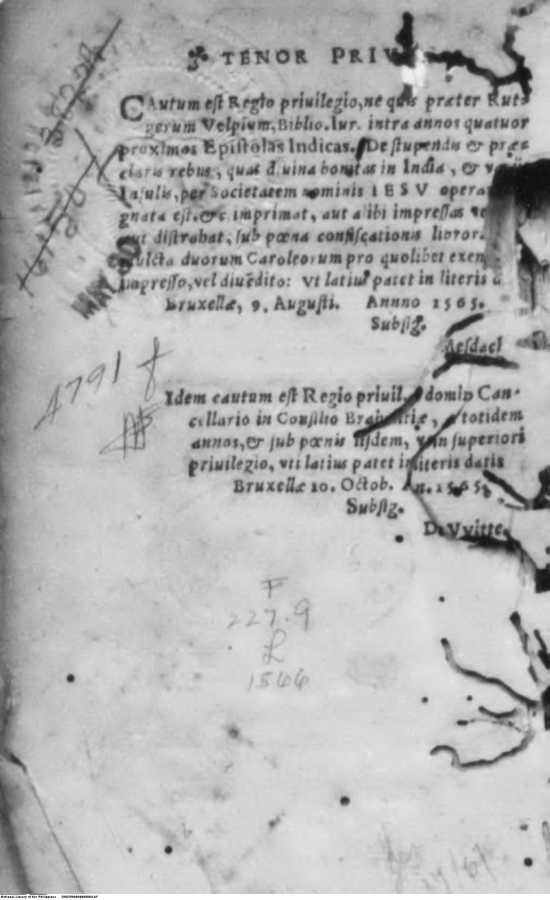 TENOR PRIV
CAutum est Regio priuilegio, ne quis præter Rut
gerum Velpium, Biblio. Iur. intra annos quatuor
proximos Epistolas Indicas. De stupendis & præ
claris rebus, quas diuina bonitas in India, &
Insulis, per Societatem nominis IESV opera
gnata est, &c. imprimat, aut alibi impressas
aut distrahat, sub pœna confiscationis
mulcta duorum Caroleorum pro quolibet exem
impresso, vel diuēdito: Vt latius patet in literis
Bruxellæ, 9. Augusti. Annno 1565.
Subsig.
Aesdael
Idem cautum est Regio priuil. domin Can-
cellario in Consilio Brabantiæ, totidem
annos, & sub pœnis iisdem, superiori
priuilegio, vti latius patet literis datis
Bruxellæ 10. Octob. An. 1565.
Subsig.
De VVitte.
4791
F
227.9
L
1566